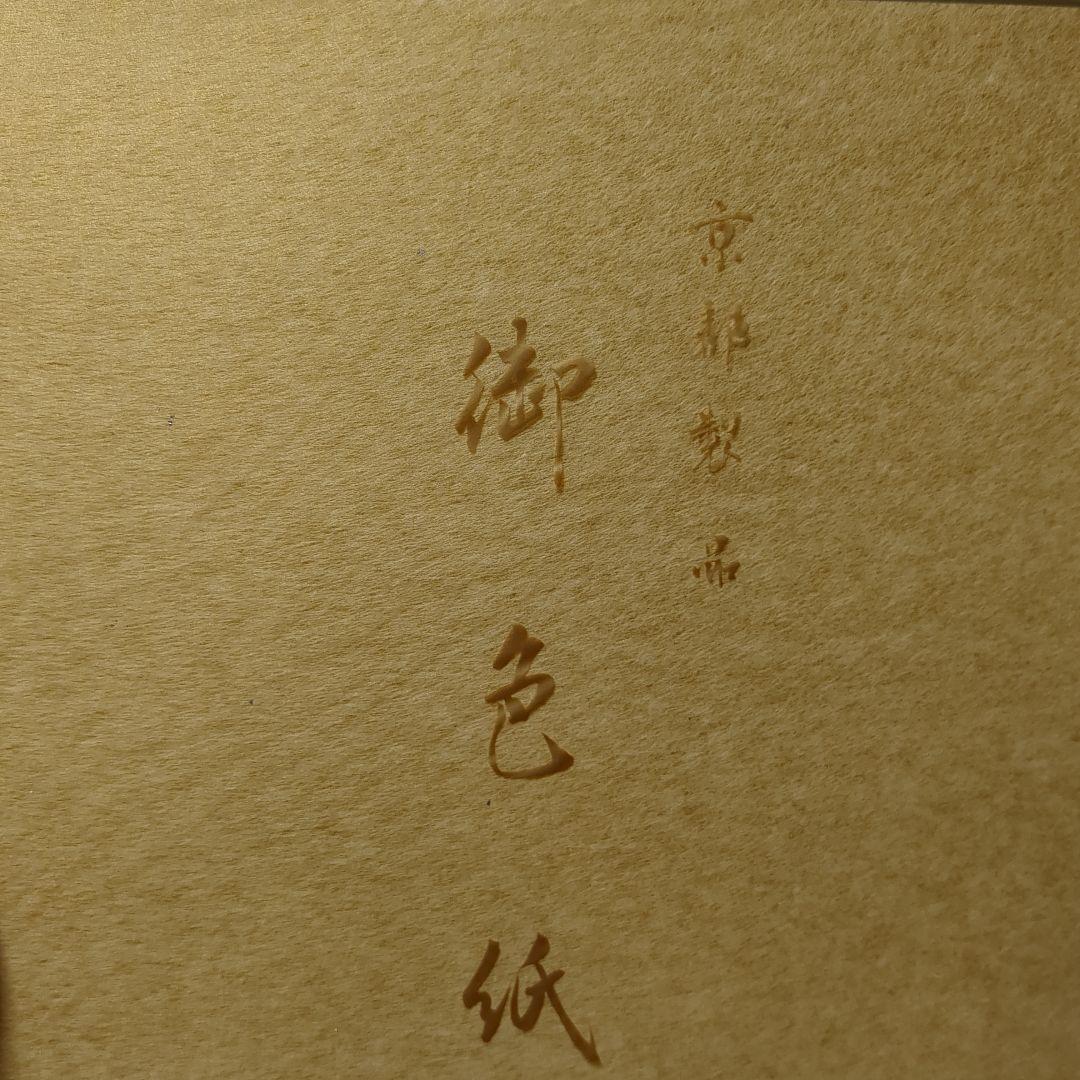 京都製品
御色紙